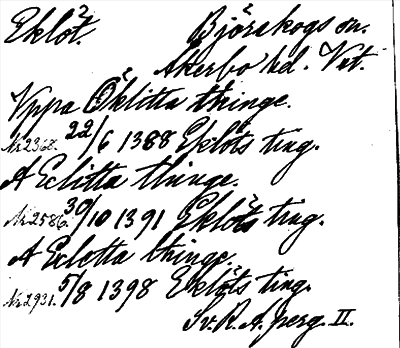 Eklöt. Björskogs sn.
Åkerbo hd. Vst.
Vppa Öklitta thinge.
Nr 2368. 22/6 1388 Eklöts ting.
A Eclitta thinge.
Nr 2586. 30/10 1391 Eklöts ting.
A Eclotta thinge.
Nr 2931. 5/8 1398 Eklöts ting.
Sv. R. A. perg. II.